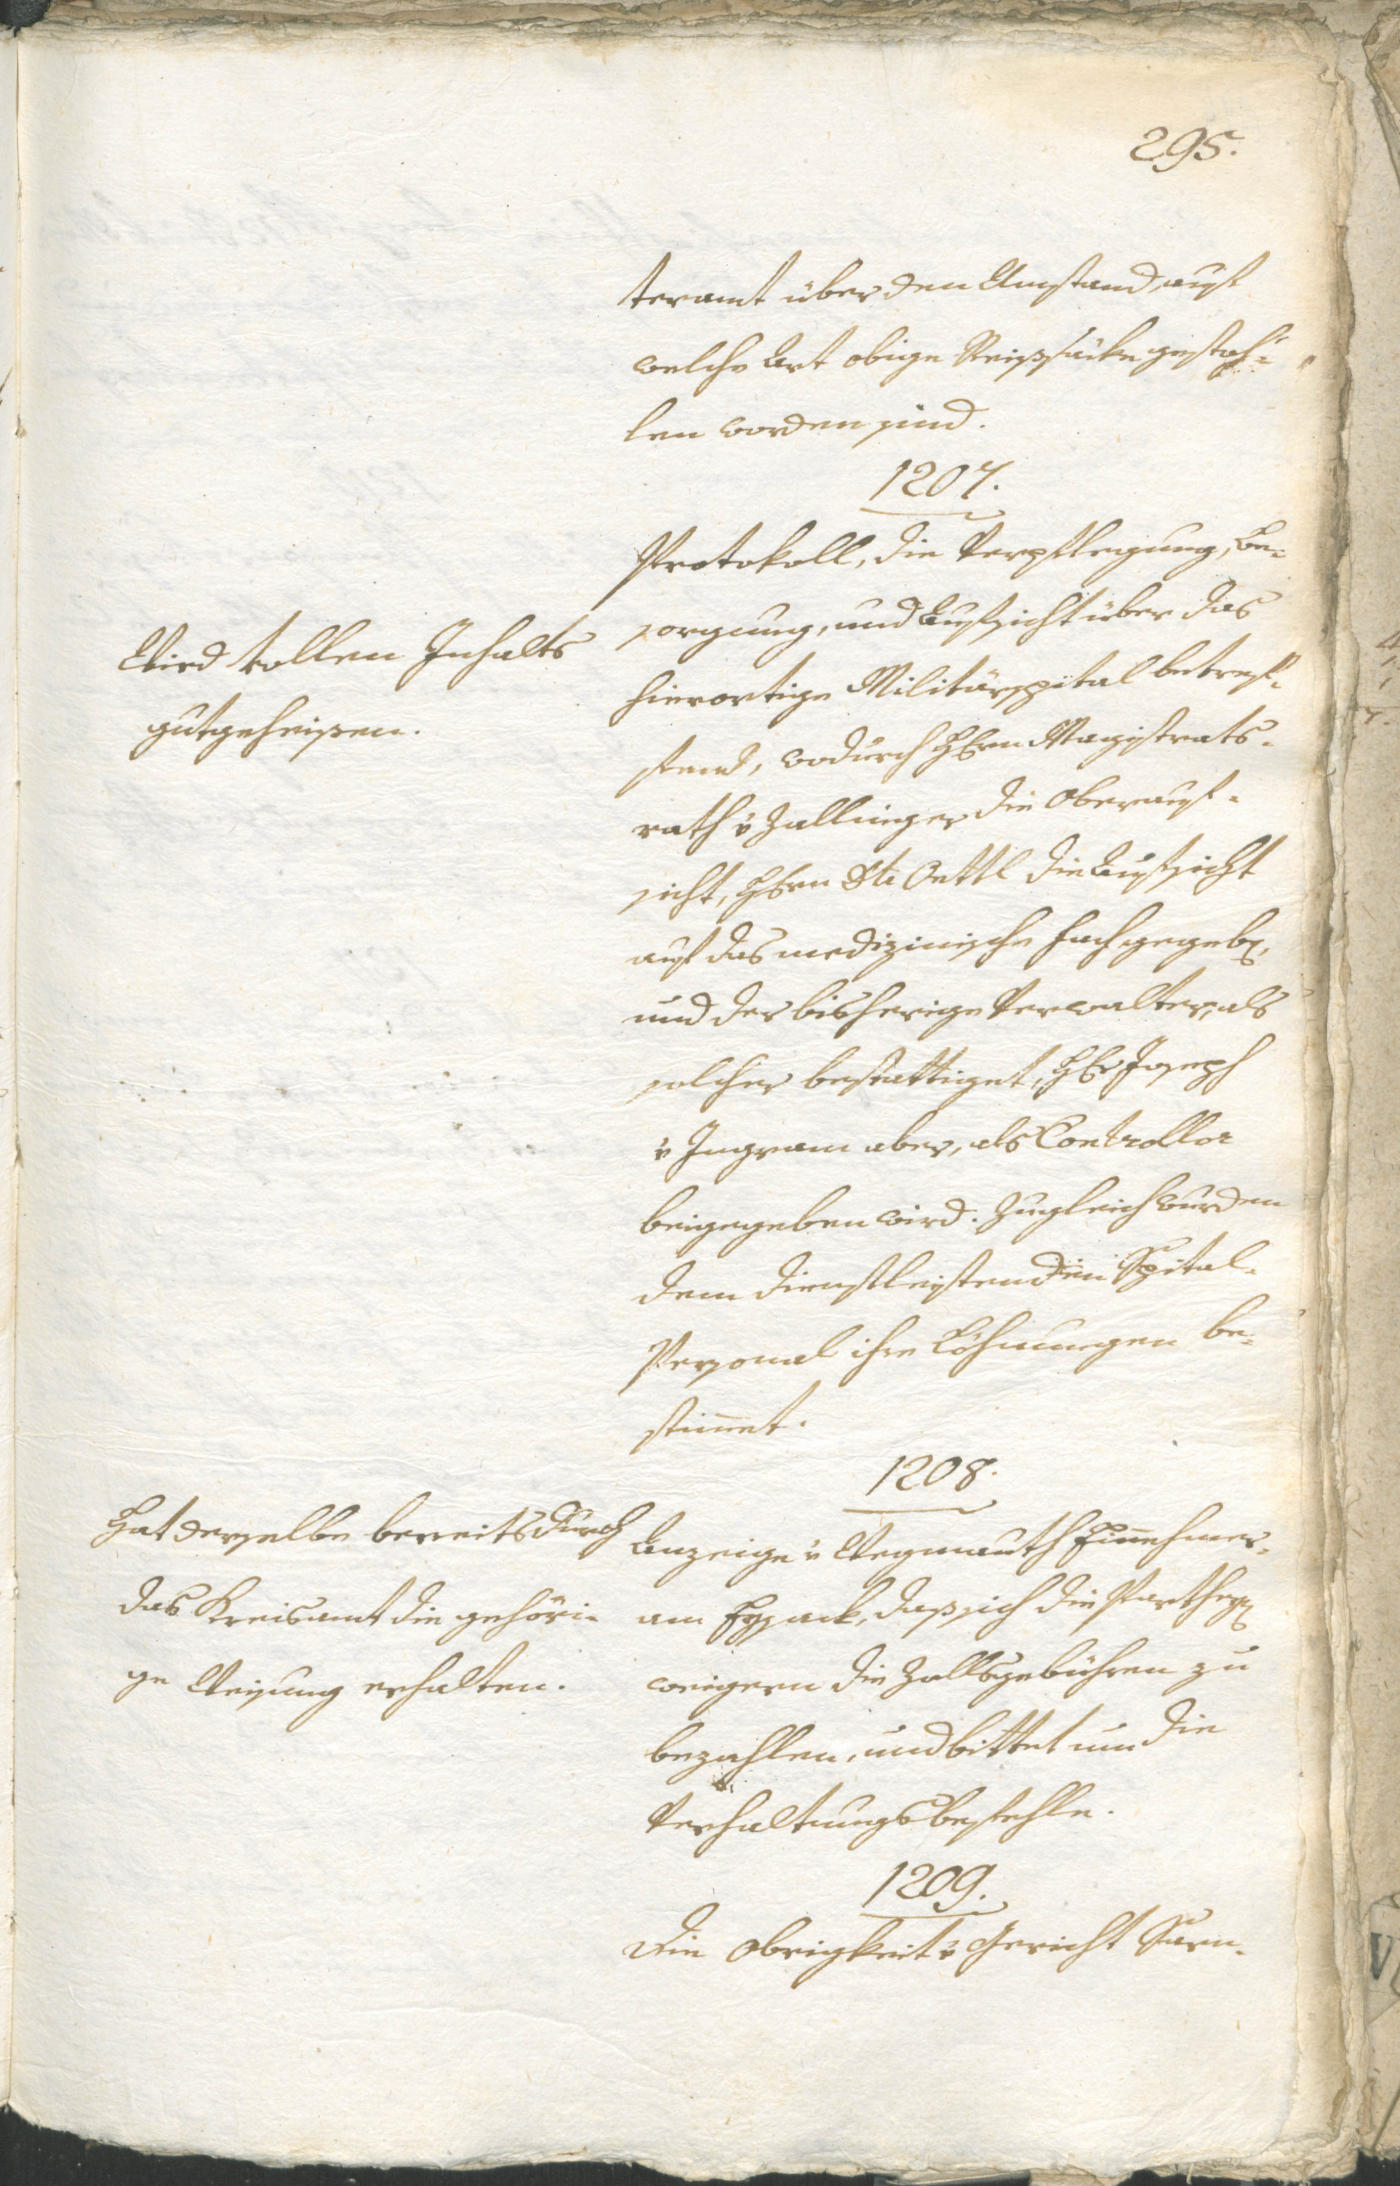 295.
teramt über den Umstand, auf
welche Art obige Reissäcke gestoh¬
len worden sind.
1207.
Protokoll, die Verpflegung, Be¬
sorgung, und Aufsicht über das
hierortige Militärspital betref¬
fend, wodurch HErrn Magistrats¬
rath v Zallinger die Oberauf¬
sicht, HErrn Dr Oettl die Aufsicht
auf das medizinische Fach gegeben,
und der bisherige Verwalter, als
solcher bestättiget, HEr Joseph
v Ingram aber, als Controllor
beigegeben wird. Zugleich wurden
dem dienstleistenden Spital¬
Personal ihre Löhnungen be¬
stimmet.
Wird vollen Inhalts
gutgeheißen.
1208.
Anzeige v Wegmauth Einnehmer
am Eysack, daß sich die Partheyen
weigern die Zollsgebühren zu
bezahlen, und bittet um die
Verhaltungsbefehle.
Hat derselbe bereits durch
das Kreisamt die gehöri¬
ge Weisung erhalten.
1209.
Die Obrigkeit v Gericht Sarn¬